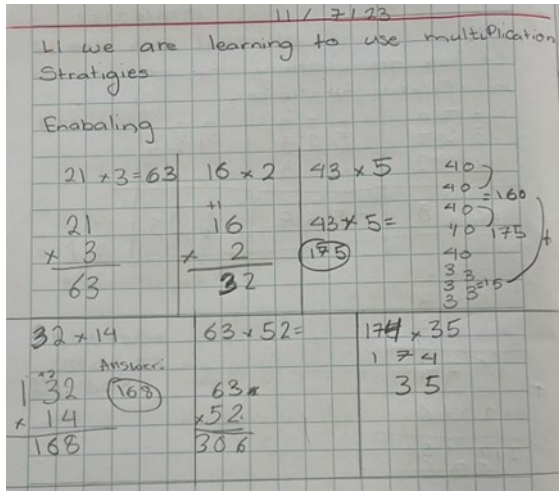 11/7/23
LI we are learning to use multiplication
Stratigies
Enabaling
21 × 3 = 63
21
× 3
63
16 × 2
+1
16
× 2
32
43 × 5
43 × 5 =
175
40
40
= 160
40
40
175
40
3 3
3 3 = 15
3
+
32 × 14
Answer:
168
+2
1 32
× 14
168
63 × 52 =
63
×52
306
174 × 35
174
35